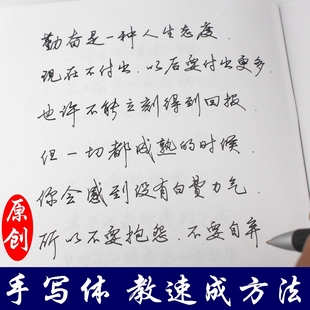 勤奋是一种人生态度.
现在不付出.以后要付出更多.
也许不能立刻得到回报.
但一切都成熟的时候.
你会感到没有白费力气.
所以不要抱怨.不要自弃
原创
手写体 教速成方法